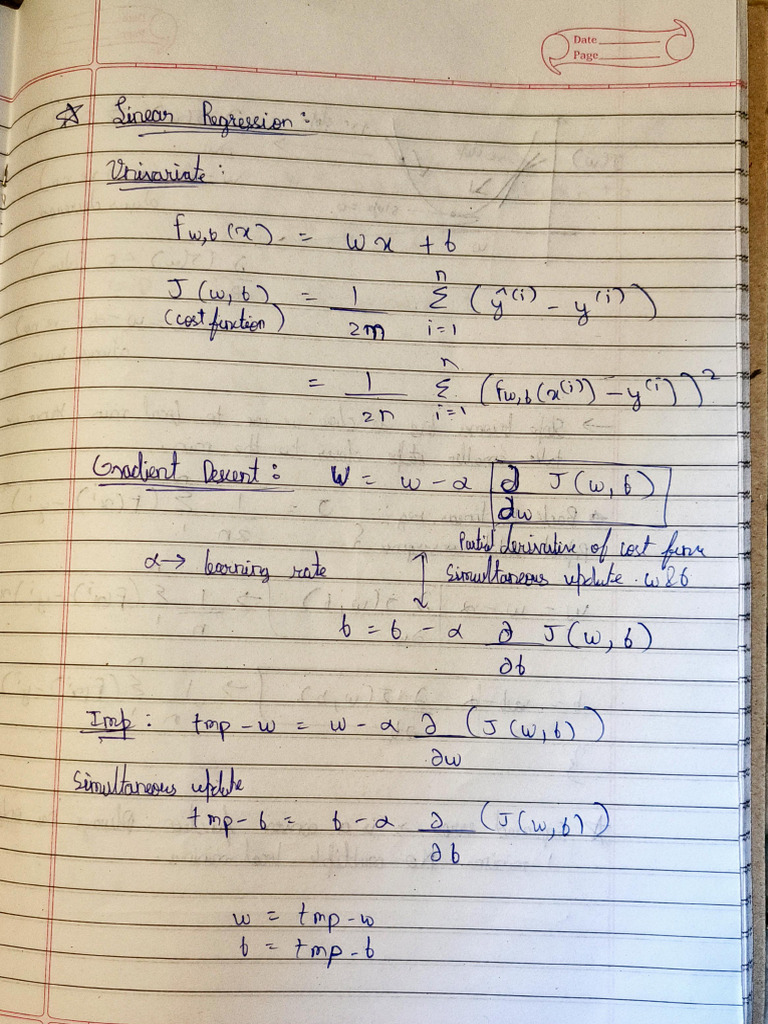 Date
Page
☆ Linear Regression:
Univariate:
fw,b(x) = wx + b
J(w,b) = 1/2m n Σ i=1 (ŷ^(i) - y^(i))
(cost function)
= 1/2n n Σ i=1 (fw,b(x^(i)) - y^(i))^2
Gradient Descent: W = w - α ∂/∂w J(w,b)
Partial derivative of cost func
α → learning rate ↕ Simultaneous update w & b
b = b - α ∂/∂b J(w,b)
Imp: tmp-w = w - α ∂/∂w (J(w,b))
Simultaneous update
tmp-b = b - α ∂/∂b (J(w,b))
w = tmp-w
b = tmp-b